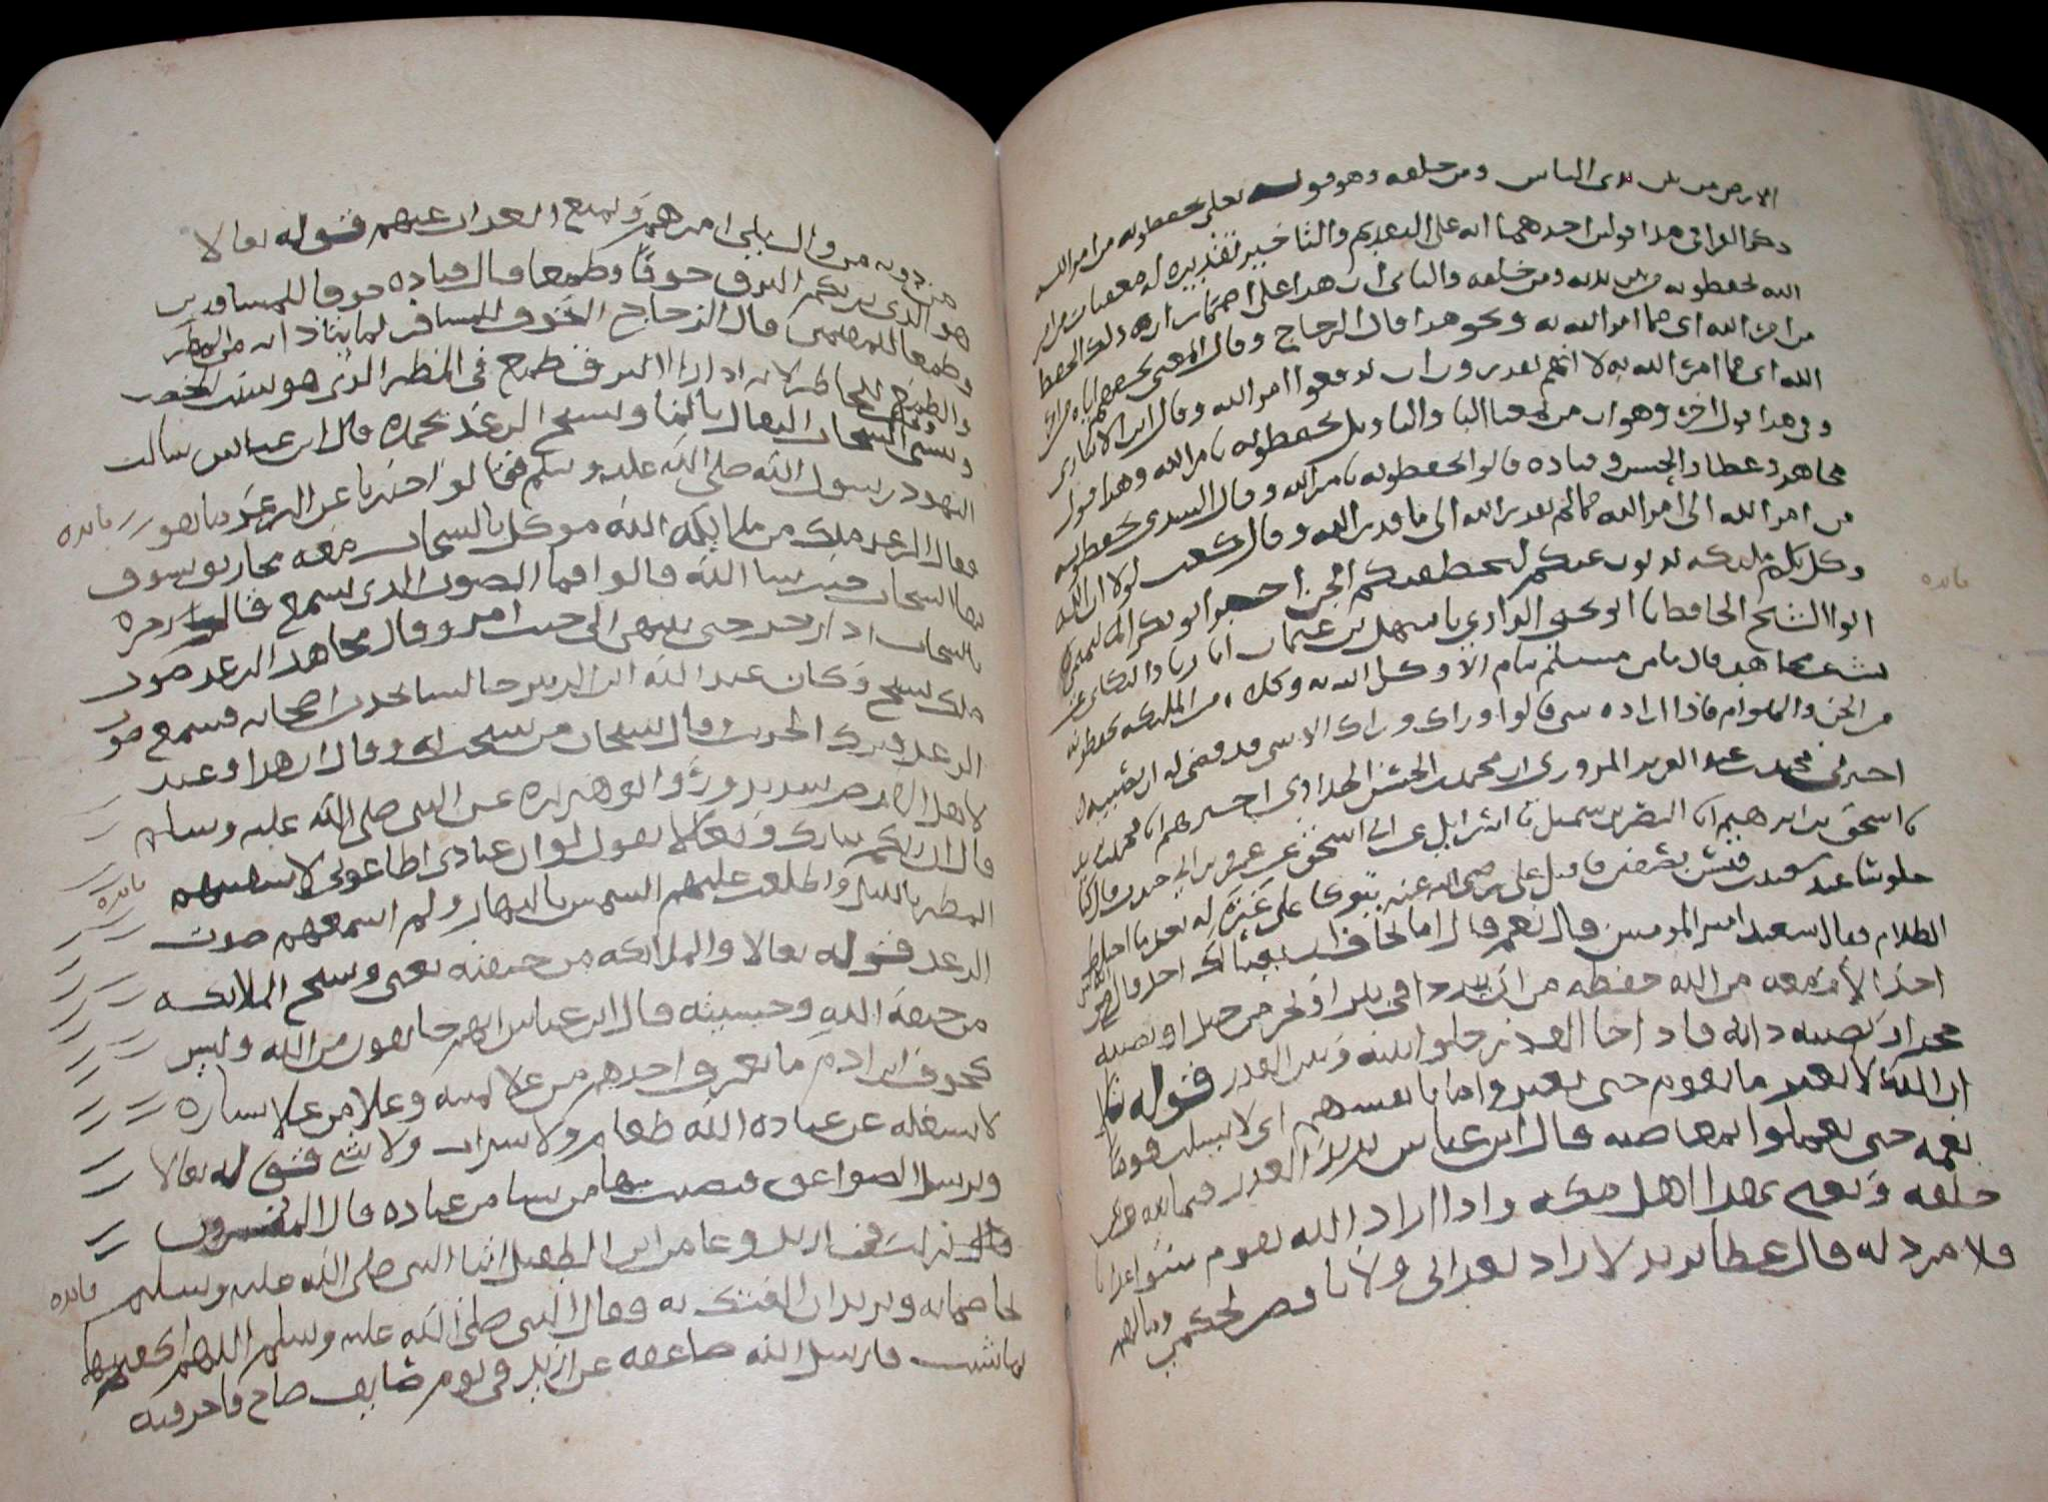 الارض من بين يدي الناس ومن خلفه وهو قوله تعلى يحفظونه من امر الله
ذكر الفرا في هذا قولين احدهما انه على التقديم والتاخير تقديره له معقبات من امر
الله يحفظونه من بين يديه ومن خلفه والثاني ان هذا على اضمار اي ذلك الحفظ
من امر الله اي مما امر الله به ونحو هذا قال الزجاج وقال المعنى حفظهم اياه من امر
الله اي مما امرا الله به لا انهم يقدرون ان يدفعوا امر الله وقال ابن الانباري
وفي هذا قول اخر وهو ان من معنا البا والتاويل يحفظونه بامر الله وهذا قول
مجاهد وعطا والحسن وقتاده قالوا يحفظونه بامر الله وقال السدي يحفظونه
من امر الله الى امر الله مما لم يقدر الله الى ما قدر الله وقال كعب لولا ان الله
وكل بكم مليكه يدبون عنكم لتخطفتكم الجن اخبرنا ابو بكر التميمي
ابو الشيخ الحافظ نا ابو يحيى الرازي نا سهل بن عثمان
ليث عن مجاهد قال ما من مسلم ينام الا وكل الله به وكلا من المليكه يحفظونه
من الجن والهوام فاذا اراده شي قالوا وراك وراك الا شي قد قضى له ان يصيبه
اخبرني محمد بن عبد العزيز المروزي ان محمد بن الحسن الحدادي اخبرهم انا محمد بن يزيد
نا اسحق بن ابرهيم انا النضر بن شميل نا اسرايل عن ابي اسحق عن عمرو بن ابي جندب قال كنا
جلوسا عند سعيد بن قيس بصفين فاقبل علي رضي الله عنه يتوكا على عنزه له بعد ما اختلط
الظلام فقال سعيد امير المومنين قال نعم قال اما تخاف ان يغتالك احد قال انه ليس
احد الا ومعه من الله حفظه من ان يتردا في بير او يخر من جبل او يصيبه
حجر او تصيبه دابه فاذا جا القدر خلوا بينه وبين القدر قوله
ان الله لا يغير ما بقوم حتى يغيروا ما بانفسهم اي لا يسلب قوما
نعمه حتى يعملوا بمعاصيه قال ابن عباس
خلقه ويعني بهذا اهل مكه واذا اراد الله بقوم سوا عذابا
فلا مرد له قال عطا يريد لا راد لعذابي ولا ناقض لحكمي وما لهم
فايده
من دونه من وال يلي امرهم ويمنع العذاب عنهم قوله تعالا
هو الذي يريكم البرق خوفا وطمعا قال قتاده خوفا للمسافرين
وطمعا للمقيمين قال الزجاج الخوف للمسافر لما يتاذى به من المطر
والطمع للحاضر لانه اذا راا البرق طمع في المطر الذي هو سبب الخصب
وينشي السحاب الثقال بالما ويسبح الرعد بحمده قال ابن عباس سالت
اليهود رسول الله صلى الله عليه وسلم فقالو اخبرنا عن الرعد ما هو
فقال الرعد ملك من ملايكه الله موكل بالسحاب معه مخاريق يسوق
بها السحاب حيث شا الله قالوا فما الصوت الذي يسمع قال زجره
بالسحاب اذا زجر حتى ينتهي الى حيث امر وقال مجاهد الرعد صوت
ملك يسبح وكان عبد الله ابن الزبير جالسا يحدث اصحابه فسمع صوت
الرعد فترك الحديث وقال سبحان من سبحت له وقال ان هذا وعيد
لاهل الارض شديد وروا ابو هريره عن النبي صلى الله عليه وسلم
قال ان ربكم تبارك وتعالا يقول لو ان عبادي اطاعوني لاسقيتهم
المطر بالليل واطلعت عليهم الشمس بالنهار ولم اسمعهم صوت
الرعد قوله تعالا والملايكه من خيفته يعني وتسبح الملايكه
من خيفة الله وخشيته قال ابن عباس انهم خايفون من الله وليس
كخوف ابن ادم ما يعرف احدهم من على يمينه وعلا من علا يساره
لا يشغله عن عباده الله طعام ولا شراب ولا شي قوله تعالا
ويرسل الصواعق فيصيب بها من يشا من عباده قال المفسرون
نزلت في اربد وعامر ابن الطفيل اتيا النبي صلى الله عليه وسلم
يخاصمانه ويريدان الفتك به فقال النبي صلى الله عليه وسلم اللهم اكفنيهما
بما شيت فارسل الله صاعقه على اربد في يوم صايف صاح فاحرقته
فايده
فايده
فايده